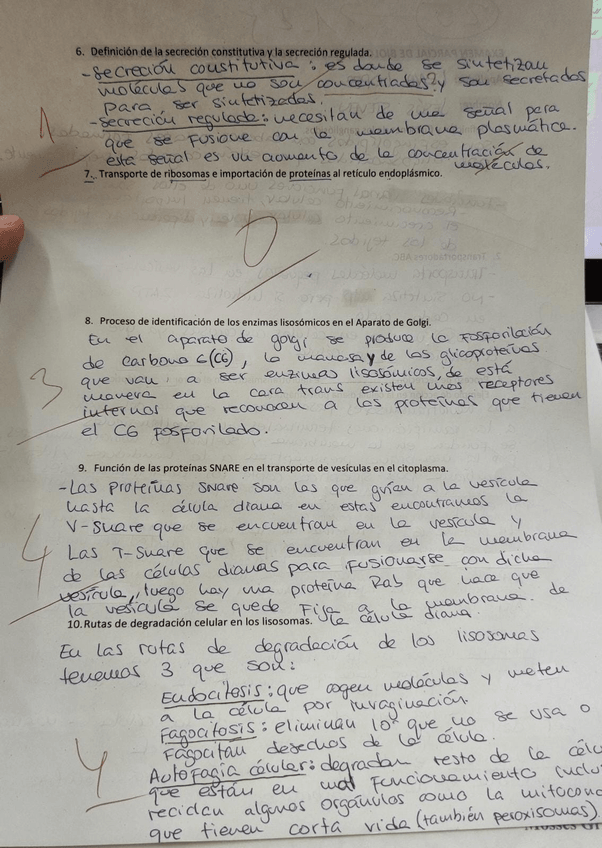 6. Definición de la secreción constitutiva y la secreción regulada.
- Secreción constitutiva : es donde se sintetizan
moléculas que no son concentradas? y son secretados
para ser sintetizados.
- Secreción regulada : necesitan de una señal para
que se fusione con la membrana plasmática.
esta señal es un aumento de la concentración de
moléculas.
1
7. Transporte de ribosomas e importación de proteínas al retículo endoplásmico.
0
8. Proceso de identificación de los enzimas lisosómicos en el Aparato de Golgi.
En el aparato de golgi se produce la fosforilación
de carbono 6 (C6), la manosa y de las glicoproteínas
que van a ser enzimas lisosómicos, de está
manera en la cara trans existen unos receptores
internos que reconocen a las proteínas que tienen
el C6 fosforilado.
3
9. Función de las proteínas SNARE en el transporte de vesículas en el citoplasma.
- Las proteínas snare son las que guían a la vesícula
hasta la célula diana en estas encontramos la
V-snare que se encuentran en la vesícula y
Las T-snare que se encuentran en la membrana
de las células dianas para fusionarse con dicha
vesícula, luego hay una proteína Rab que hace que
la vesícula se quede fija a la membrana de
la célula diana.
4
10. Rutas de degradación celular en los lisosomas.
En las rutas de degradación de los lisosomas
tenemos 3 que son:
Endocitosis : que cogen moléculas y meten
a la célula por invaginación
Fagocitosis : eliminan lo que no se usa o
fagocitan desechos de la célula.
Autofagia célular : degradan resto de la célu
que están en mal funcionamiento inclu
reciclan algunos orgánulos como la mitocon
que tienen corta vida (también peroxisomas)
4